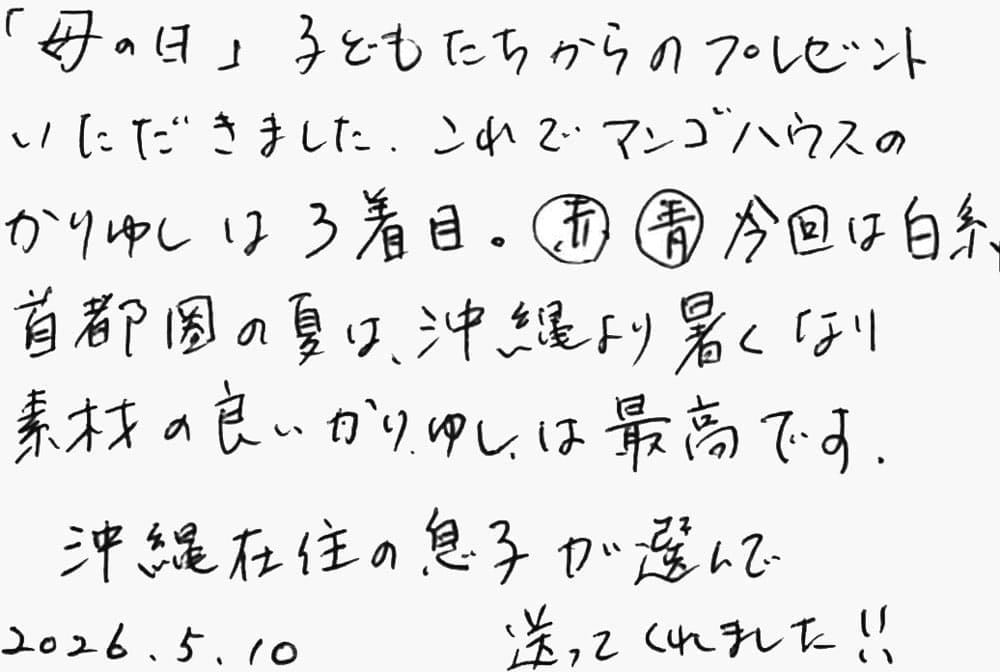 「母の日」子どもたちからのプレゼント
いただきました．これでマンゴハウスの
かりゆしは3着目。㊍赤 ㊍青 今回は白系、
首都圏の夏は、沖縄より暑くなり
素材の良いかりゆしは最高です．
沖縄在住の息子が選んで
送ってくれました!!
2026.5.10